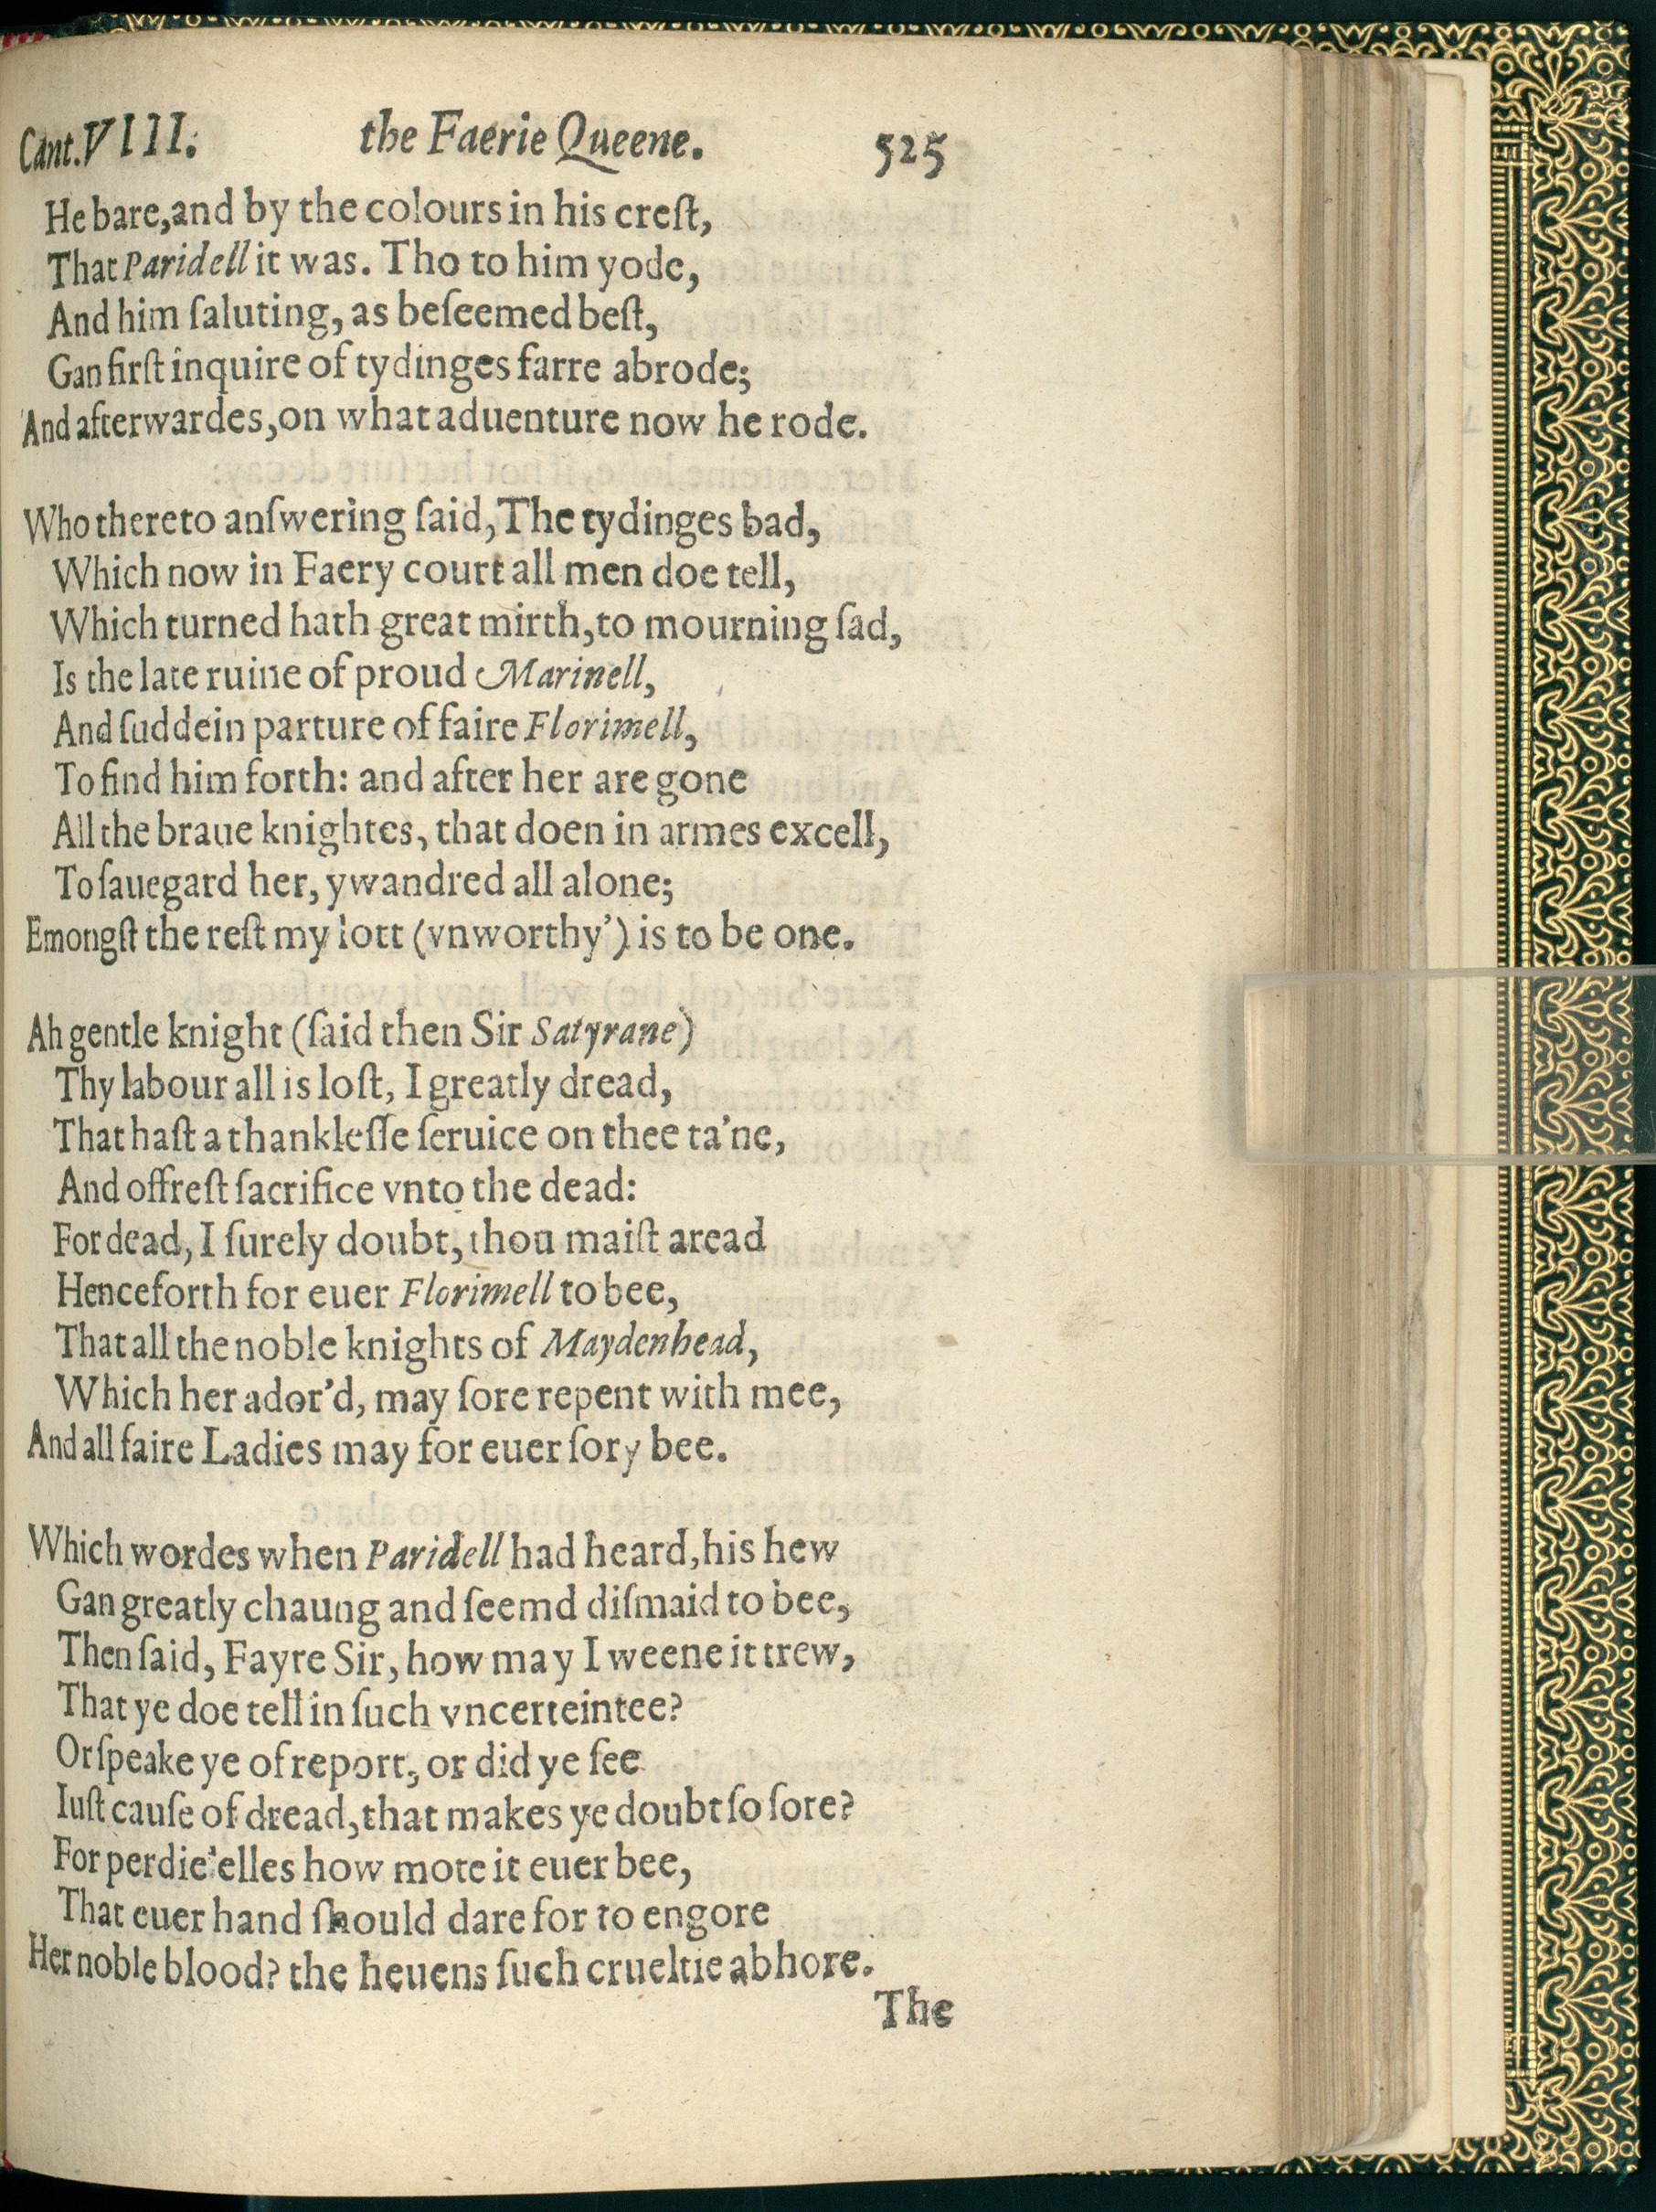 Cant. VIII. the Faerie Queene. 525
He bare, and by the colours in his creſt,
That Paridell it was. Tho to him yode,
And him ſaluting, as beſeemed beſt,
Gan firſt inquire of tydinges farre abrode;
And afterwardes, on what aduenture now he rode.
Who thereto anſwering ſaid, The tydinges bad,
Which now in Faery court all men doe tell,
Which turned hath great mirth, to mourning ſad,
Is the late ruine of proud Marinell,
And ſuddein parture of faire Florimell,
To find him forth: and after her are gone
All the braue knightes, that doen in armes excell,
To ſauegard her, ywandred all alone;
Emongſt the reſt my lott (vnworthy') is to be one.
Ah gentle knight (ſaid then Sir Satyrane)
Thy labour all is loſt, I greatly dread,
That haſt a thankleſſe ſeruice on thee ta'ne,
And offreſt ſacrifice vnto the dead:
For dead, I ſurely doubt, thou maiſt aread
Henceforth for euer Florimell to bee,
That all the noble knights of Maydenhead,
Which her ador'd, may ſore repent with mee,
And all faire Ladies may for euer ſory bee.
Which wordes when Paridell had heard, his hew
Gan greatly chaung and ſeemd diſmaid to bee,
Then ſaid, Fayre Sir, how may I weene it trew,
That ye doe tell in ſuch vncerteintee?
Or ſpeake ye of report, or did ye ſee
Iuſt cauſe of dread, that makes ye doubt ſo ſore?
For perdie' elles how mote it euer bee,
That euer hand ſhould dare for to engore
Her noble blood? the heuens ſuch crueltie abhore.
The